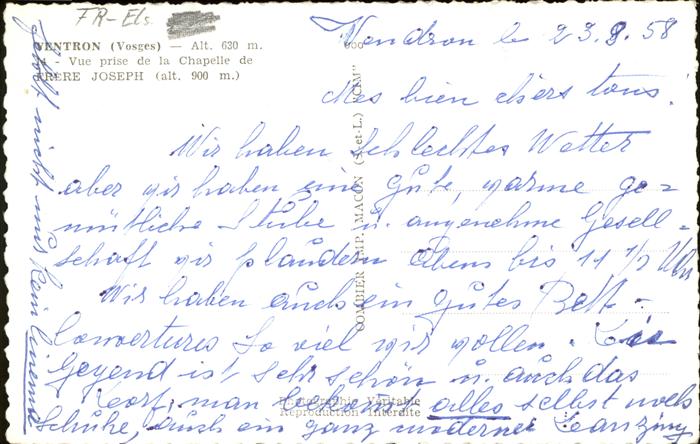 FR-Els.
VENTRON (Vosges) — Alt. 630 m.
- Vue prise de la Chapelle de
FRERE JOSEPH (alt. 900 m.)
COMBIER IMP. MACON (S.-et-L.) "CIM"
Vendron le 23.8.58
Mes bien chers tous.
Wir haben schlechtes Wetter
aber wir haben eine gute, warme ge=
mütliche Stube u. angenehme Gesell=
schaft wir plaudern abens bis 11 1/2 Uhr
Wir haben auch ein gutes Bett-
couvertures so viel wir wollen. Die
Gegend ist sehr schön u. auch das
Dorf, man alles selbst noch
Schuhe, auch ein ganz moderner
Photographie Véritable
Reproduction Interdite
nicht mis Kein Cinema